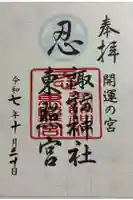 奉拝
開運の宮
忍
諏訪神社
東照宮
令和七年十月二十日